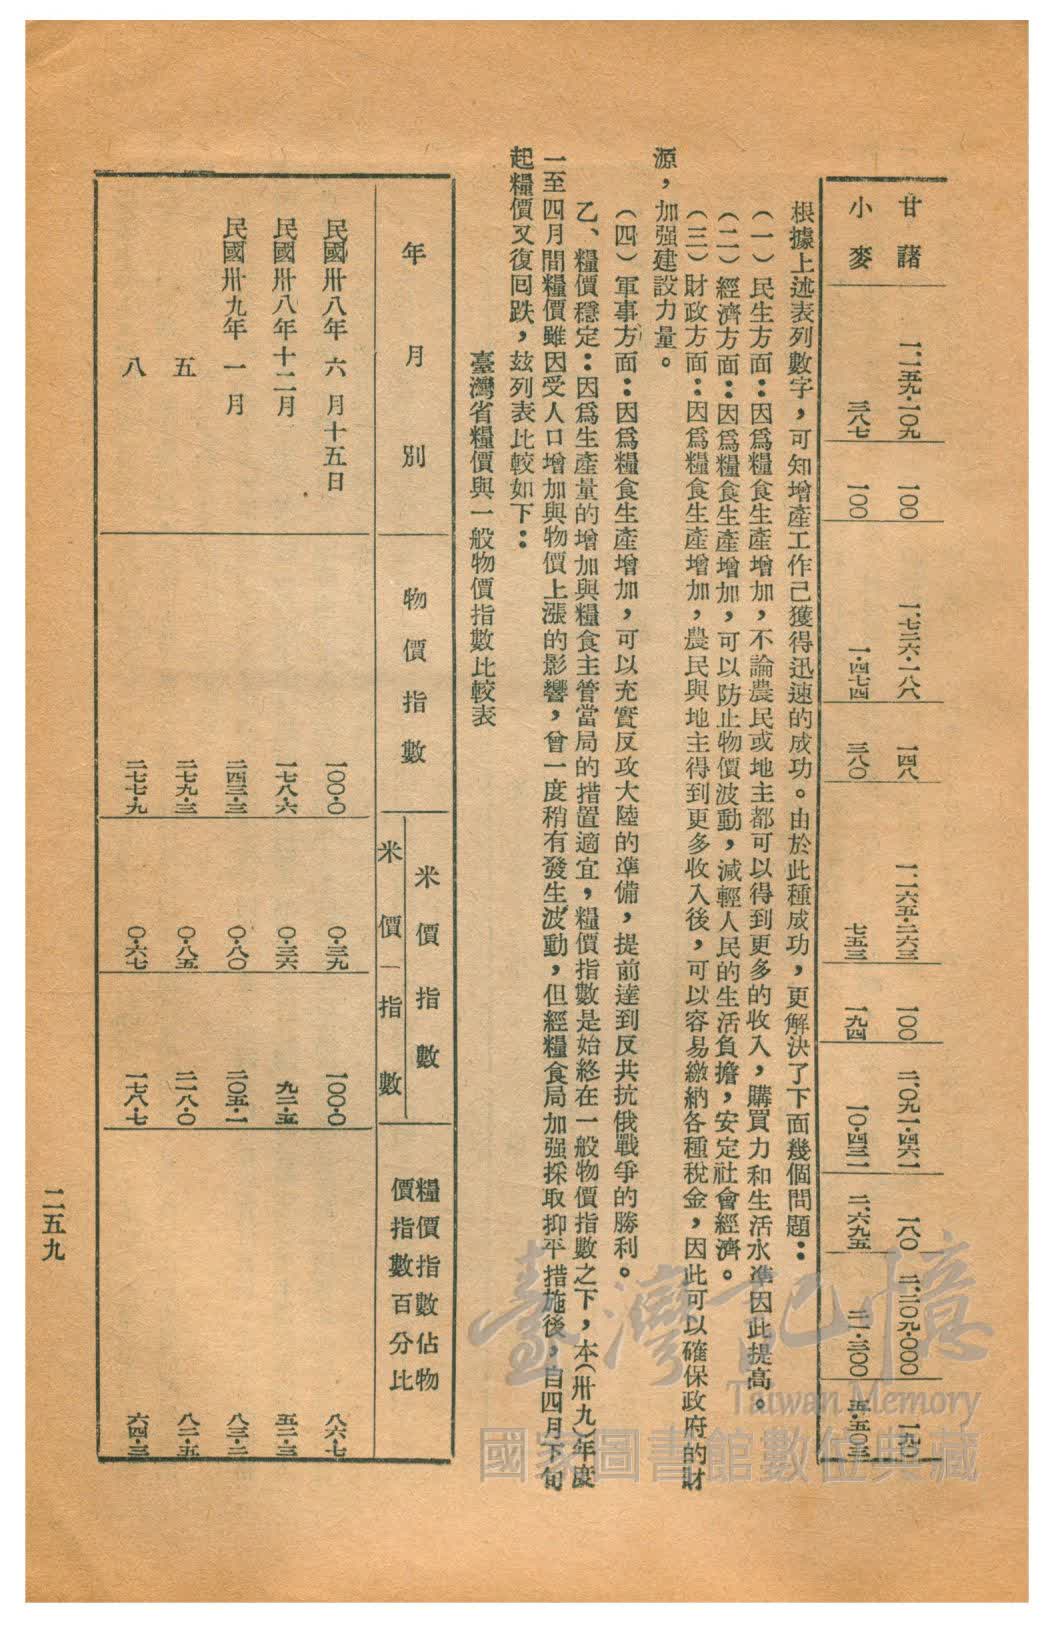 甘藷 一、一五九・一〇九 一〇〇 一、七二六・一八六 一四八 一、一六五・二六三 一〇〇 二、〇九一・四六一 一八〇 二、二〇九・〇〇〇 一九〇
小麥 三八七 一〇〇 一・四七四 三八〇 七五三 一九四 一〇・四三二 二、六九五 二一・三〇〇 五・五〇三
根據上述表列數字，可知增產工作己獲得迅速的成功。由於此種成功，更解決了下面幾個問題：
（一）民生方面：因爲糧食生產增加，不論農民或地主都可以得到更多的收入，購買力和生活水準因此提高。
（二）經濟方面：因爲糧食生產增加，可以防止物價波動，減輕人民的生活負擔，安定社會經濟。
（三）財政方面：因爲糧食生產增加，農民與地主得到更多收入後，可以容易繳納各種稅金，因此可以確保政府的財
源，加强建設力量。
（四）軍事方面：因爲糧食生產增加，可以充實反攻大陸的準備，提前達到反共抗俄戰爭的勝利。
乙、糧價穩定：因爲生產量的增加與糧食主管當局的措置適宜，糧價指數是始終在一般物價指數之下，本（卅九）年度
一至四月間糧價雖因受人口增加與物價上漲的影響，曾一度稍有發生波動，但經糧食局加强採取抑平措施後，自四月下旬
起糧價又復回跌，茲列表比較如下：
臺灣省糧價與一般物價指數比較表
年月別 物價指數 米價指數 米價 指數 糧價指數佔物價指數百分比
民國卅八年六月十五日 一〇〇・〇 〇・三九 一〇〇・〇 八六・七
民國卅八年十二月 一七八・六 〇・三六 九二・五 五二・三
民國卅九年一月 二四三・三 〇・八〇 二〇五・一 八三・二
五 二七九・三 〇・八五 二一八・〇 八二・五
八 二七七・九 〇・六七 一七八・七 六四・三
二五九
臺灣記憶
Taiwan Memory
國家圖書館數位典藏